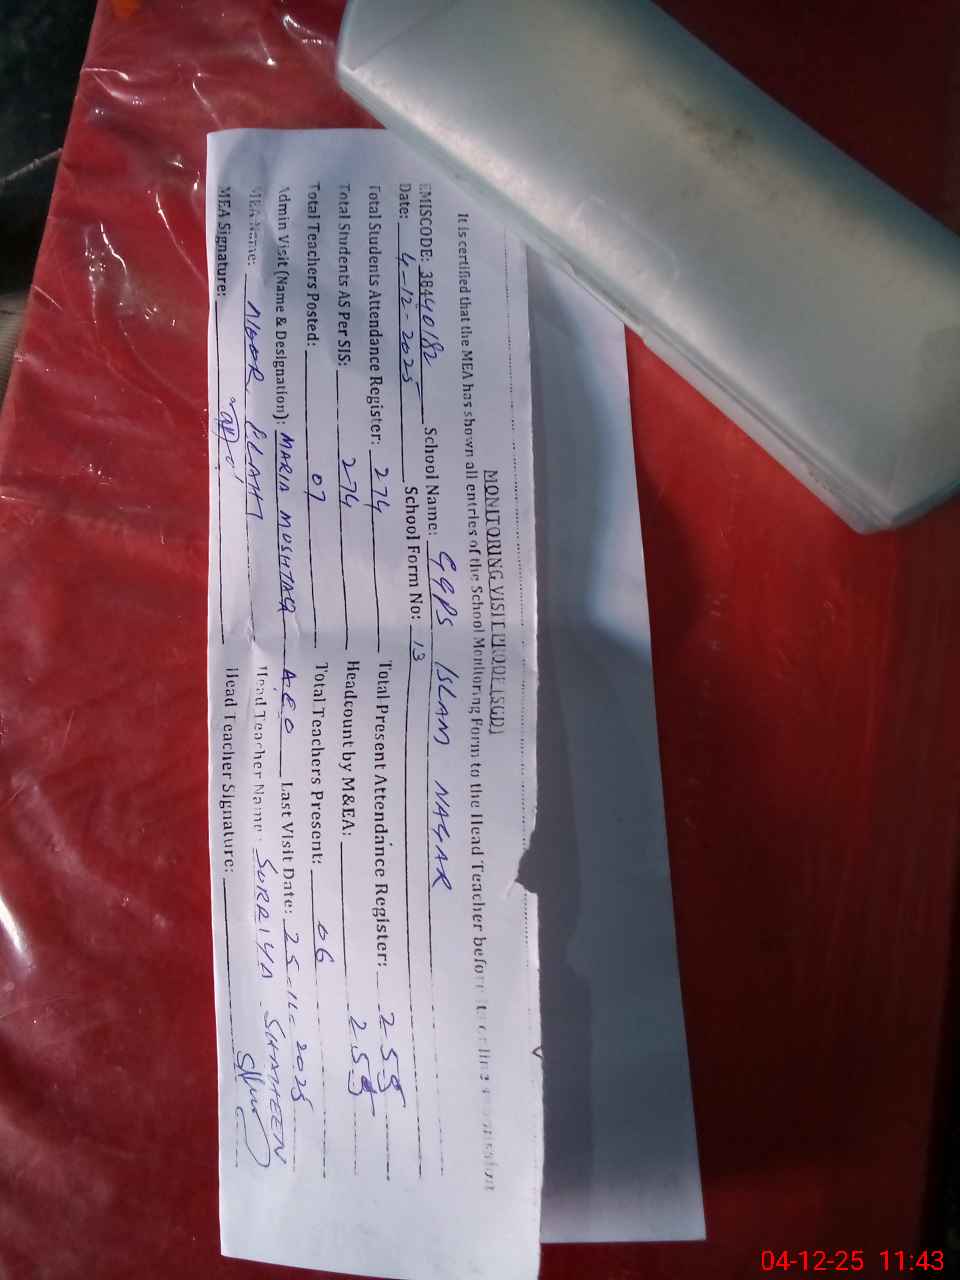 MONITORING VISIT PROOF (SGD)
It is certified that the MEA has shown all entries of the School Monitoring Form to the Head Teacher before its online submission
EMISCODE: 38440182 School Name: GGPS ISLAM NAGAR
Date: 4-12-2025 School Form No: 13
Total Students Attendance Register: 274 Total Present Attendance Register: 255
Total Students AS Per SIS: 274 Headcount by M&EA: 255
Total Teachers Posted: 07 Total Teachers Present: 06
Admin Visit (Name & Designation): MARIA MUSHTAQ AEO Last Visit Date: 25-11-2025
MEA Name: ELAHI Head Teacher Name: SURRIYA SHAHEEN
MEA Signature: Head Teacher Signature:
04-12-25 11:43